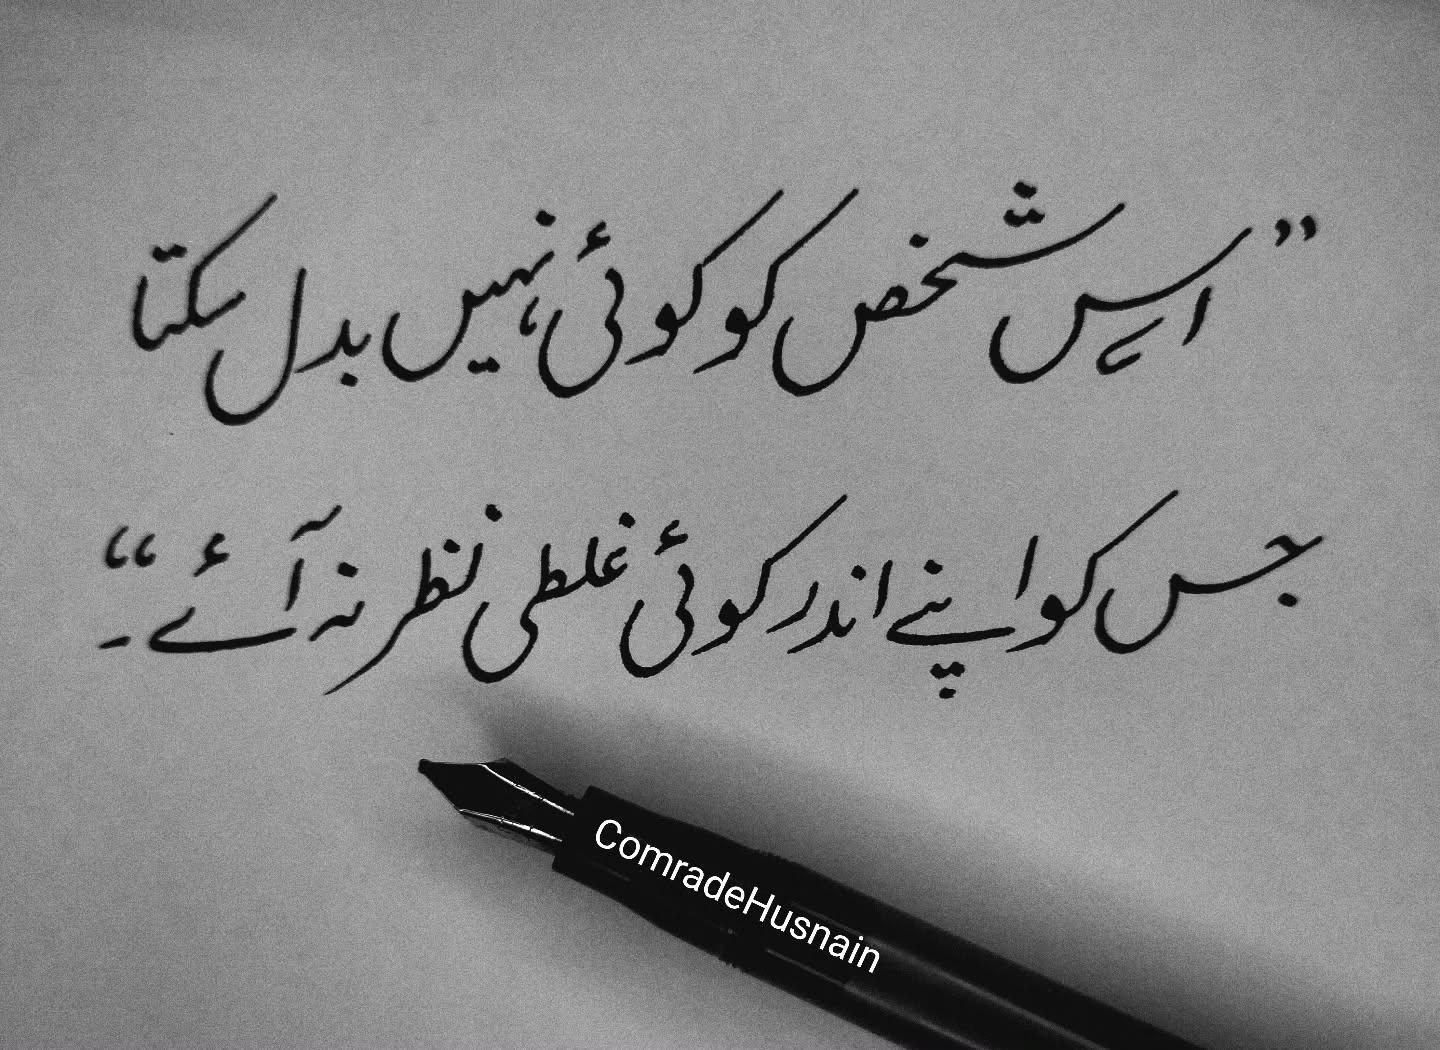 ”اس شخص کو کوئی نہیں بدل سکتا
جس کو اپنے اندر کوئی غلطی نظر نہ آئے“۔
ComradeHusnain